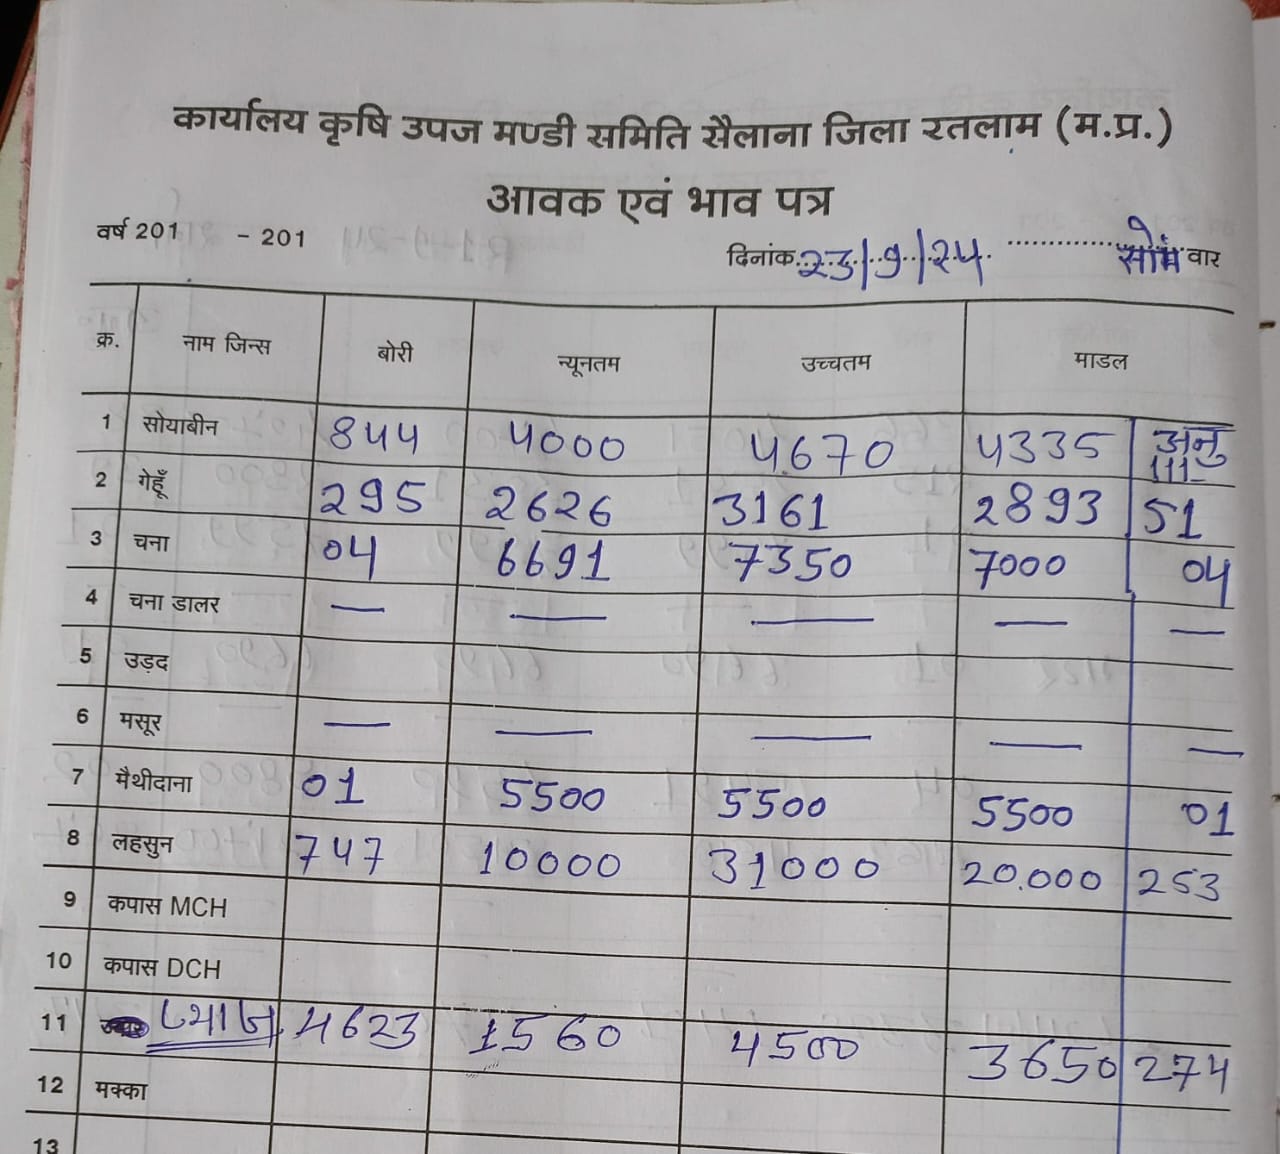 कार्यालय कृषि उपज मण्डी समिति सैलाना जिला रतलाम (म.प्र.)
आवक एवं भाव पत्र
वर्ष 201 - 201
दिनांक 23/9/24 सोम वार
क्र. नाम जिन्स बोरी न्यूनतम उच्चतम माडल
1 सोयाबीन 844 4000 4670 4335 अनु 111
2 गेहूँ 295 2626 3161 2893 51
3 चना 04 6691 7350 7000 04
4 चना डालर — — — — —
5 उड़द
6 मसूर — — — — —
7 मैथीदाना 01 5500 5500 5500 01
8 लहसुन 747 10000 31000 20.000 253
9 कपास MCH
10 कपास DCH
11 प्याज 4623 1560 4500 3650 274
12 मक्का
13